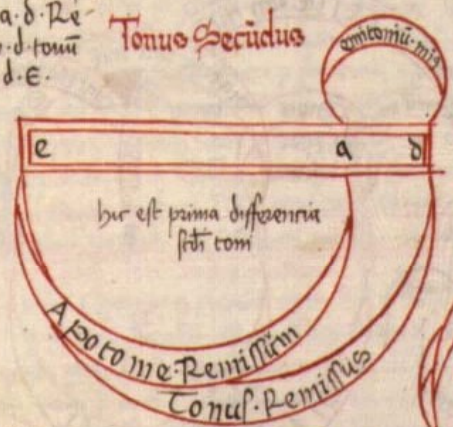 a. d. Re-
d. tonū
d. E.
Tonus Secūdus
emitoniū. miꝰ
e a d
hic est prima differentia
scdi toni
Apotome. Remissum
Tonus. Remissus